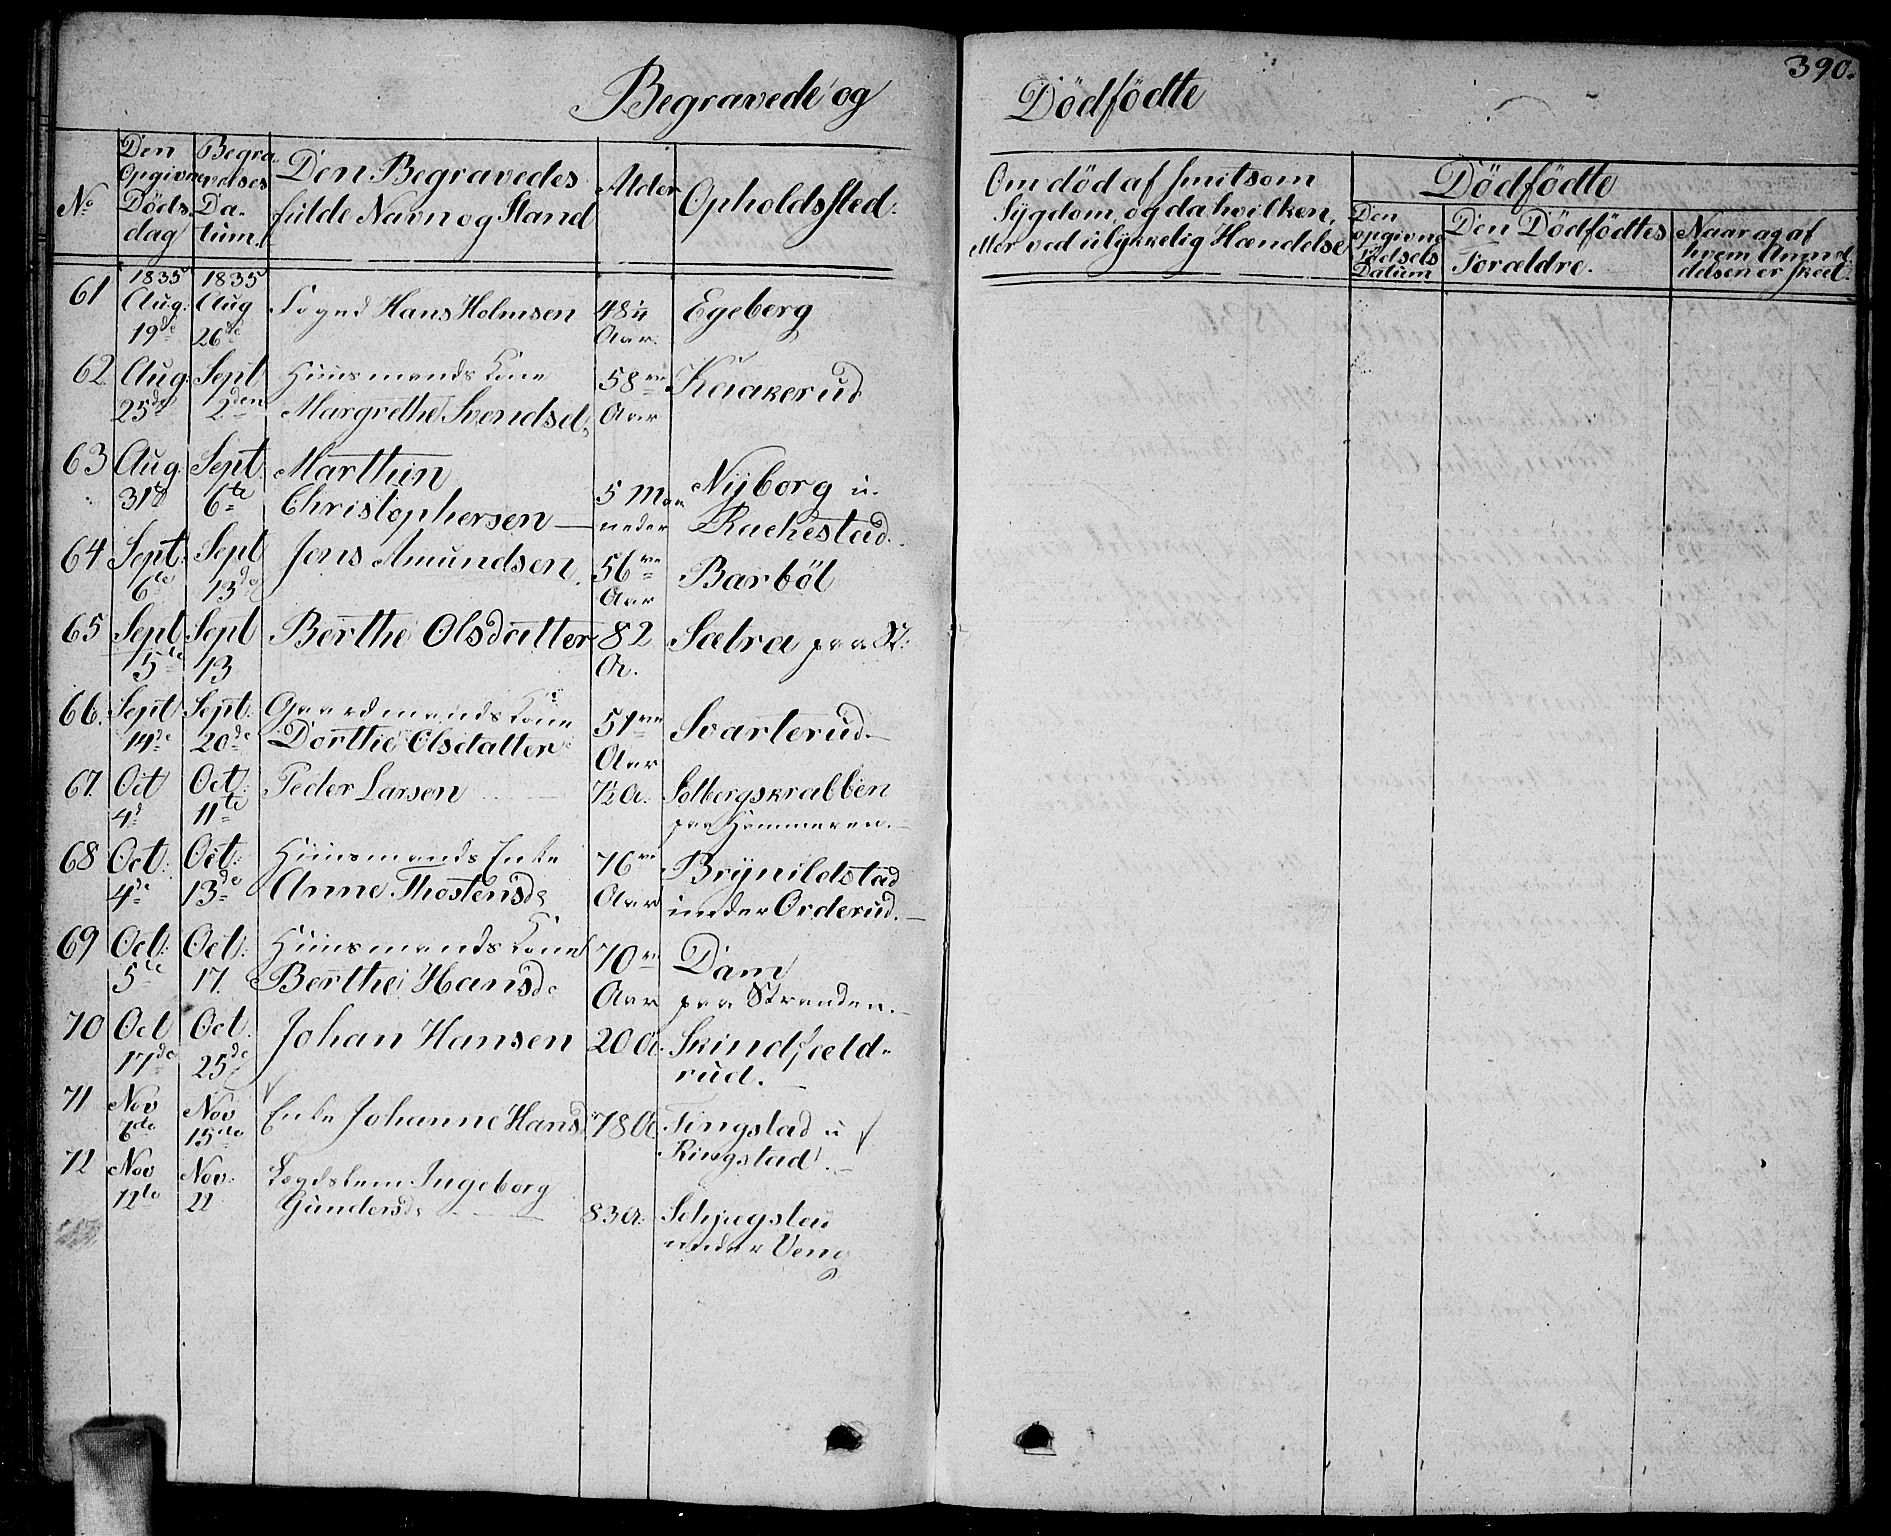 390.
Begravede og Dödfödte
No
Den Opgivne Döds dag
Begravelses Datum.
Den Begravedes fulde Navn og Stand
Alder
Opholdssted.
Om död af smitsom Sygdom, og da hvilken, eller ved ulykkelig Hændelse
Dödfödte
Den opgivne Födsels Datum
Den Dödfödtes Forældre.
Naar og af hvem Anmeldelsen er skeet.
61 1835 Aug: 19de 1835 Aug 26de Hans Holmsen 48 Aar. Egeberg
62. Aug. 25de Sept 2den Huusmands Kone Margrethe Svendsd. 58 Aar Kaakerud
63 Aug. 31te Sept 6te Marthin Christophersen 5 Maaneder Nyborg u. Rachestad.
64 Sept. 6te Sept 13de Jens Amundsen. 56 Aar Barböl
65 Sept 5te Sept 13 Berthe Olsdatter 82 A. Sætra paa St:
66. Sept 14de Sept. 20de Gaardmands Kone Dorthe Olsdatter 51 Aar Svarterud.
67. Oct 4d Oct. 11te Peder Larsen ½ A. Solbergskrabben paa Hammeren.
68 Oct. 4de Oct. 13de Huusmands Enke Anne Thostensd. 76 Aar Brynildstad under Orderud.
69 Oct. 5te Oct. 17. Huusmands Kone Berthe Hansd. 70 Aar Dam paa Stranden.
70 Oct 17de Oct. 25de Johan Hansen 20 A. Skindfældrud.
71 Nov 6de Nov 15de Enke Johanne Hansd. 78 A. Tingstad u Ringstad.
72 Nov 12te Nov. 22 Lægdslem Ingeborg Gundersd. 83 A. under Veng